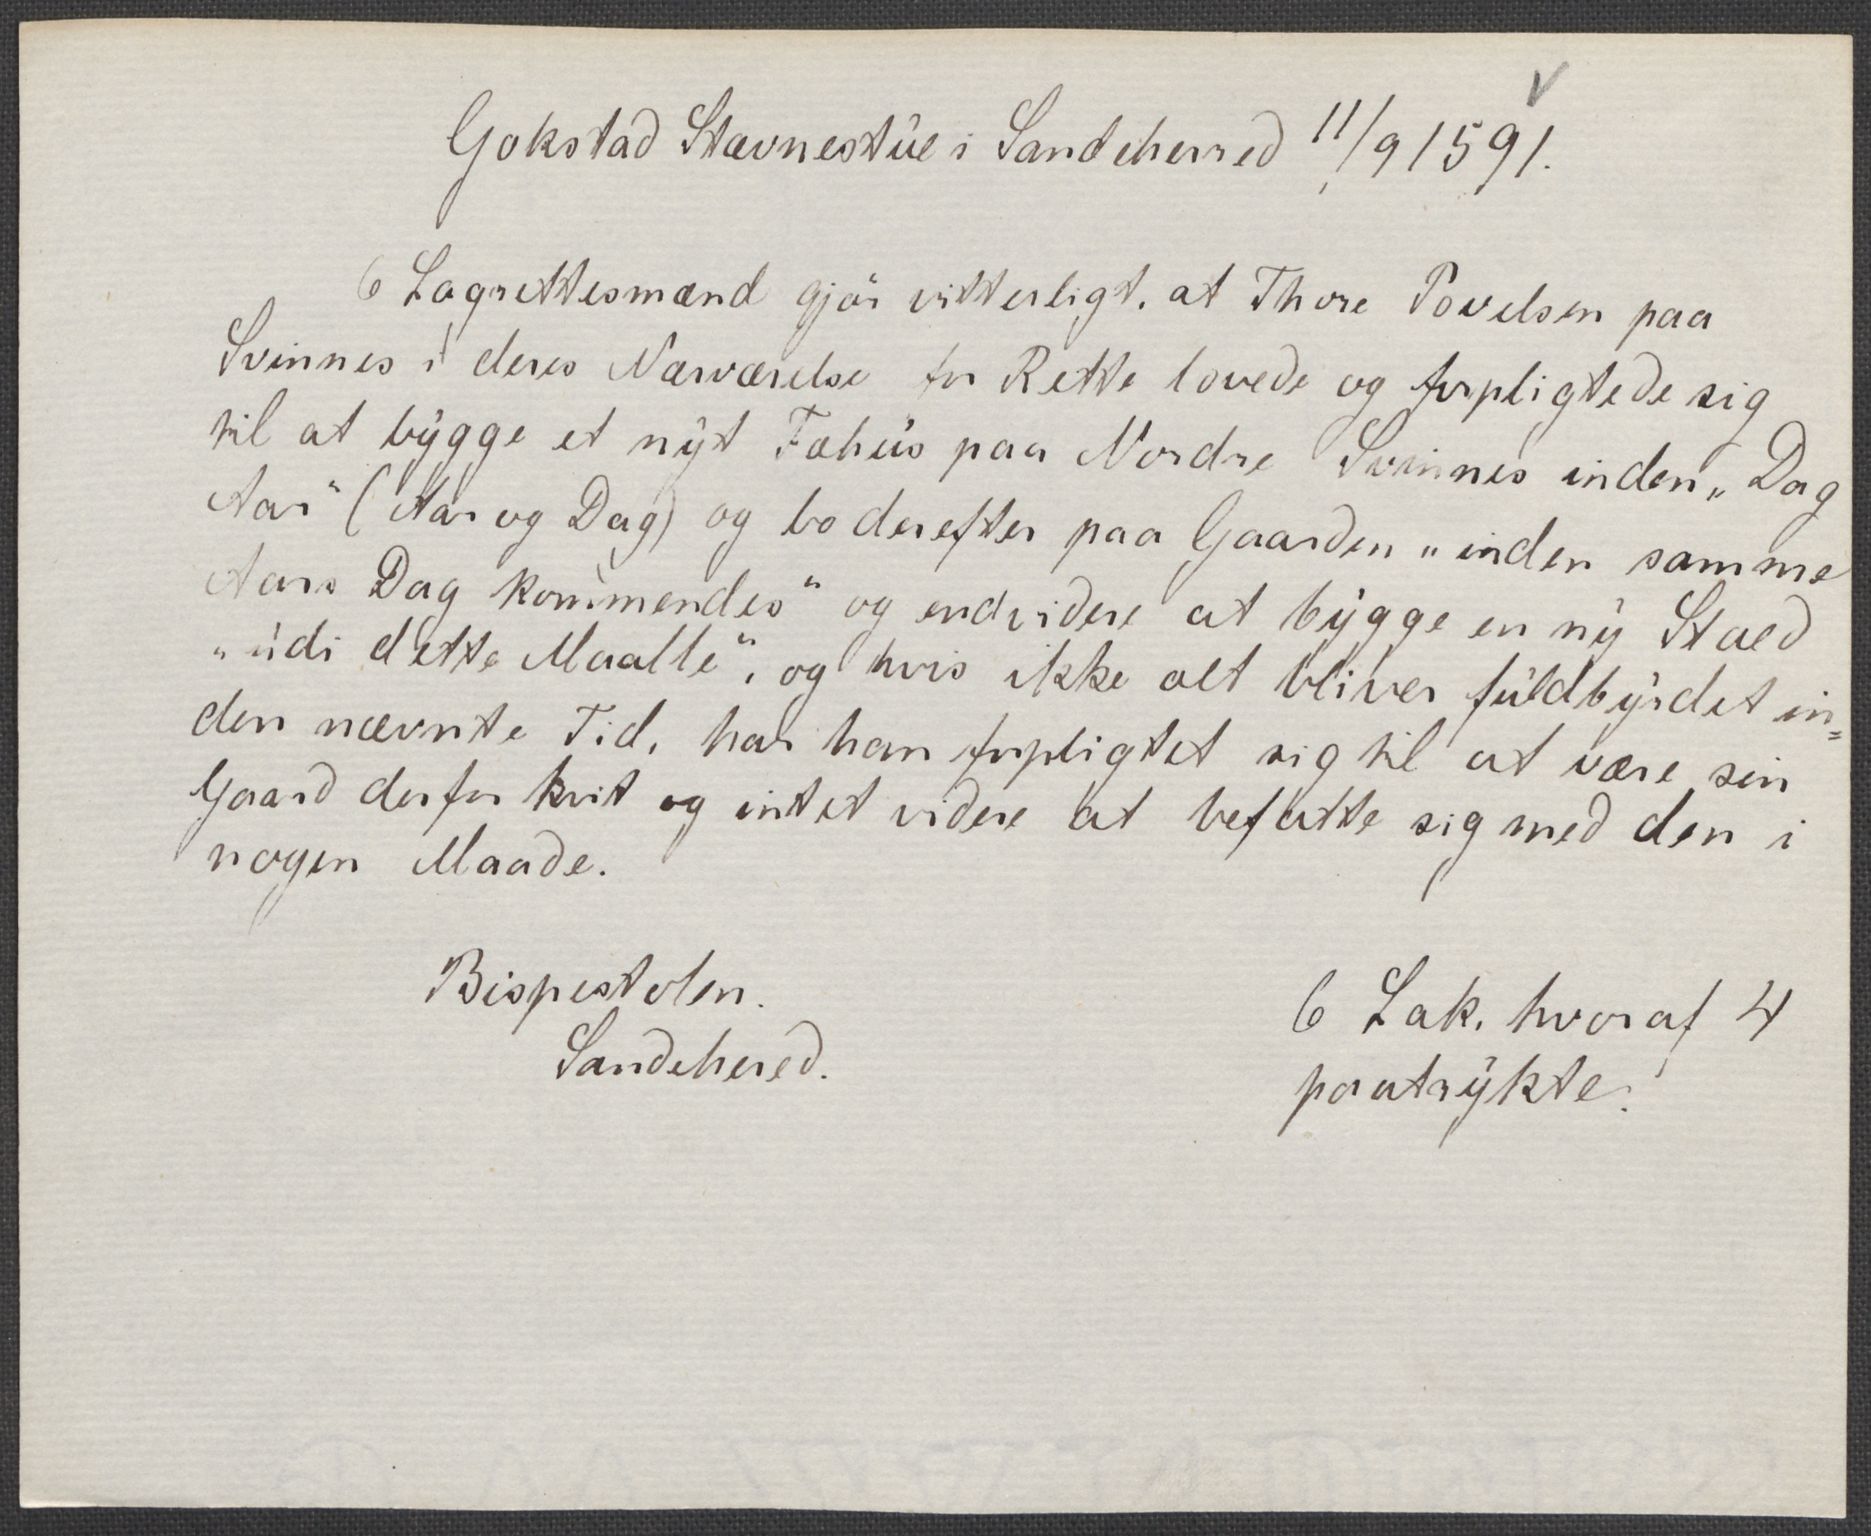 Gokstad Stævnestue i Sandeherred 11/9 1591.
6 Lagrettesmænd gjör vitterligt, at Thore Povelsen paa
Svinnes i deres Nærværelse for Rette lovede og forpligtede sig
til at bygge et nyt Fæhus paa Nordre Svinnes inden „Dag
Aar“ (Aar og Dag) og bo derefter paa Gaarden „inden samme
Aars Dag kommendes“ og endvidere at bygge en ny Stald
„udi dette Maalle“, og hvis ikke alt bliver fuldbyrdet in=
den nævnte Tid, har han forpligtet sig til at være sin
Gaard derfor kvit og intet videre at befatte sig med den i
nogen Maade.
Bispestolen.
Sandehered.
6 Lak, hvoraf 4
paatrykte.